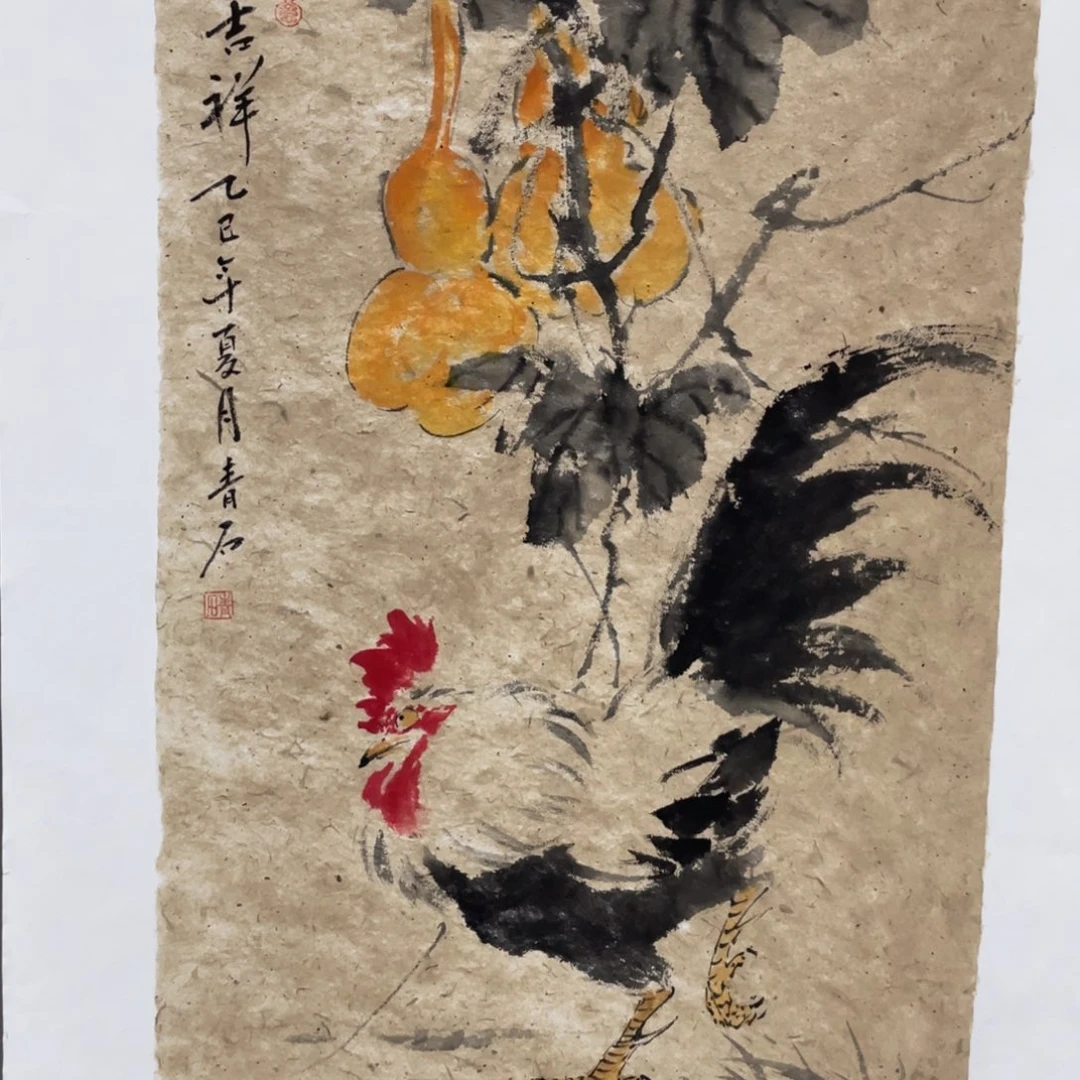 吉祥 乙巳年夏月 青石
青石